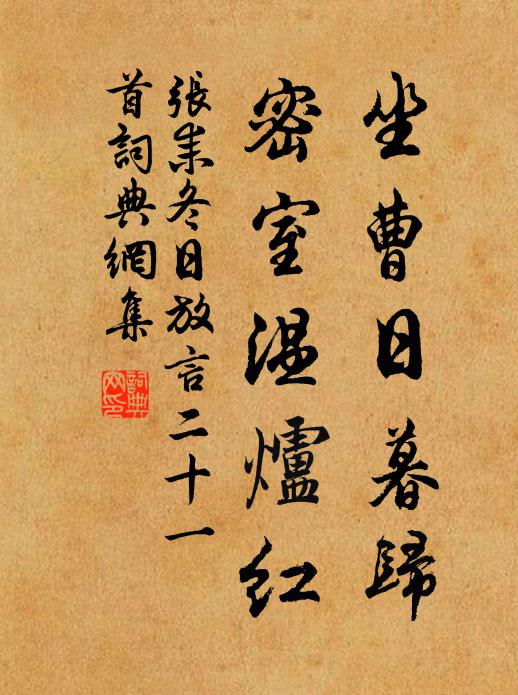 坐曹日暮歸
密室温爐紅
張耒冬日放言二十一
首詞典網集
詞典
网印